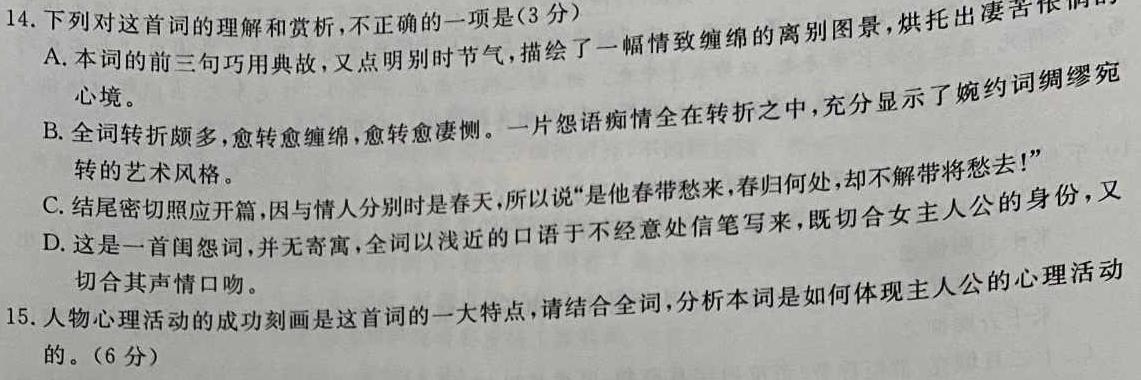 14. 下列对这首词的理解和赏析,不正确的一项是(3 分)
A. 本词的前三句巧用典故,又点明别时节气,描绘了一幅情致缠绵的离别图景,烘托出凄苦怅惘的
心境。
B. 全词转折颇多,愈转愈缠绵,愈转愈凄恻。一片怨语痴情全在转折之中,充分显示了婉约词绸缪宛
转的艺术风格。
C. 结尾密切照应开篇,因与情人分别时是春天,所以说“是他春带愁来,春归何处,却不解带将愁去!”
D. 这是一首闺怨词,并无寄寓,全词以浅近的口语于不经意处信笔写来,既切合女主人公的身份,又
切合其声情口吻。
15. 人物心理活动的成功刻画是这首词的一大特点,请结合全词,分析本词是如何体现主人公的心理活动
的。(6 分)